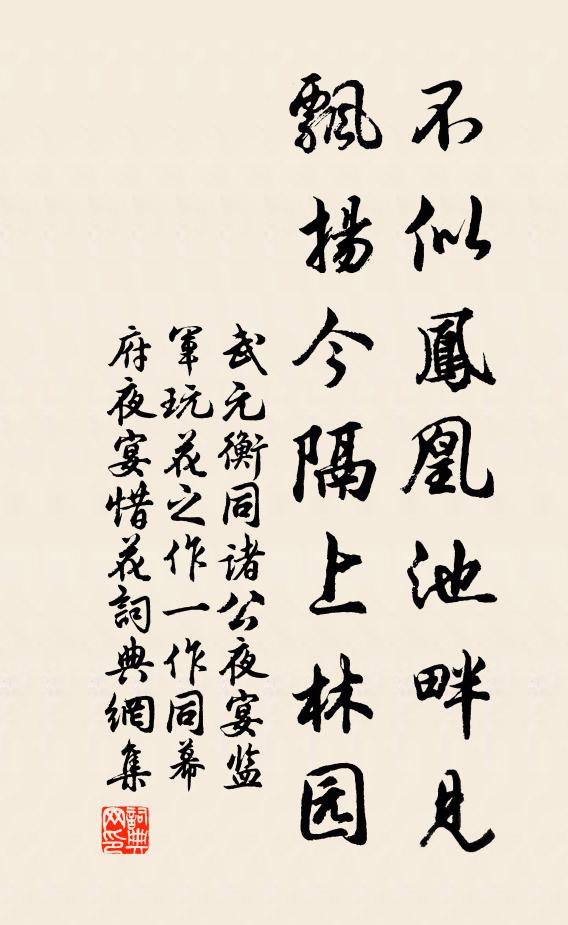 不似鳳凰池畔見
飄揚今隔上林园
武元衡同诸公夜宴监
軍玩花之作一作同幕
府夜宴惜花詞典網集
詞典网印